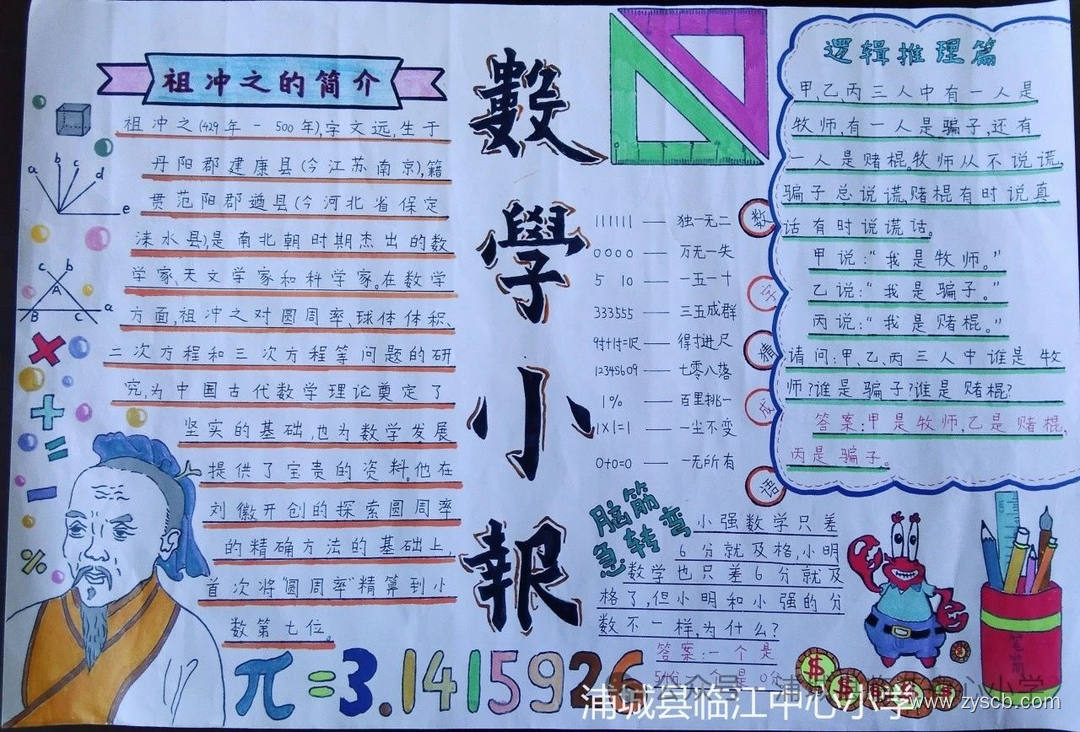 祖冲之的简介
祖冲之(429年-500年),字文远,生于
丹阳郡建康县(今江苏南京),籍
贯范阳郡遒县(今河北省保定
涞水县),是南北朝时期杰出的数
学家、天文学家和科学家。在数学
方面,祖冲之对圆周率、球体体积、
二次方程和三次方程等问题的研
究,为中国古代数学理论奠定了
坚实的基础,也为数学发展
提供了宝贵的资料,他在
刘徽开创的探索圆周率
的精确方法的基础上,
首次将"圆周率"精算到小
数第七位。
a b c d e
c b
A
B C a
數學小報
数字猜成语
1111111 —— 独一无二
0000 —— 万无一失
5 10 —— 一五一十
333555 —— 三五成群
9寸+1寸=1尺 —— 得寸进尺
12345609 —— 七零八落
1% —— 百里挑一
1×1=1 —— 一尘不变
0+0=0 —— 一无所有
逻辑推理篇
甲、乙、丙三人中有一人是
牧师,有一人是骗子,还有
一人是赌棍。牧师从不说谎,
骗子总说谎,赌棍有时说真
话有时说谎话。
甲说:“我是牧师。”
乙说:“我是骗子。”
丙说:“我是赌棍。”
请问:甲、乙、丙三人中谁是牧
师?谁是骗子?谁是赌棍?
答案:甲是牧师,乙是赌棍,
丙是骗子。
脑筋
急转弯
小强数学只差
6分就及格,小明
数学也只差6分就及
格了,但小明和小强的分
数不一样,为什么?
答案:一个是
π=3.1415926
笔筒
浦城县临江中心小学
www.zyscb.com